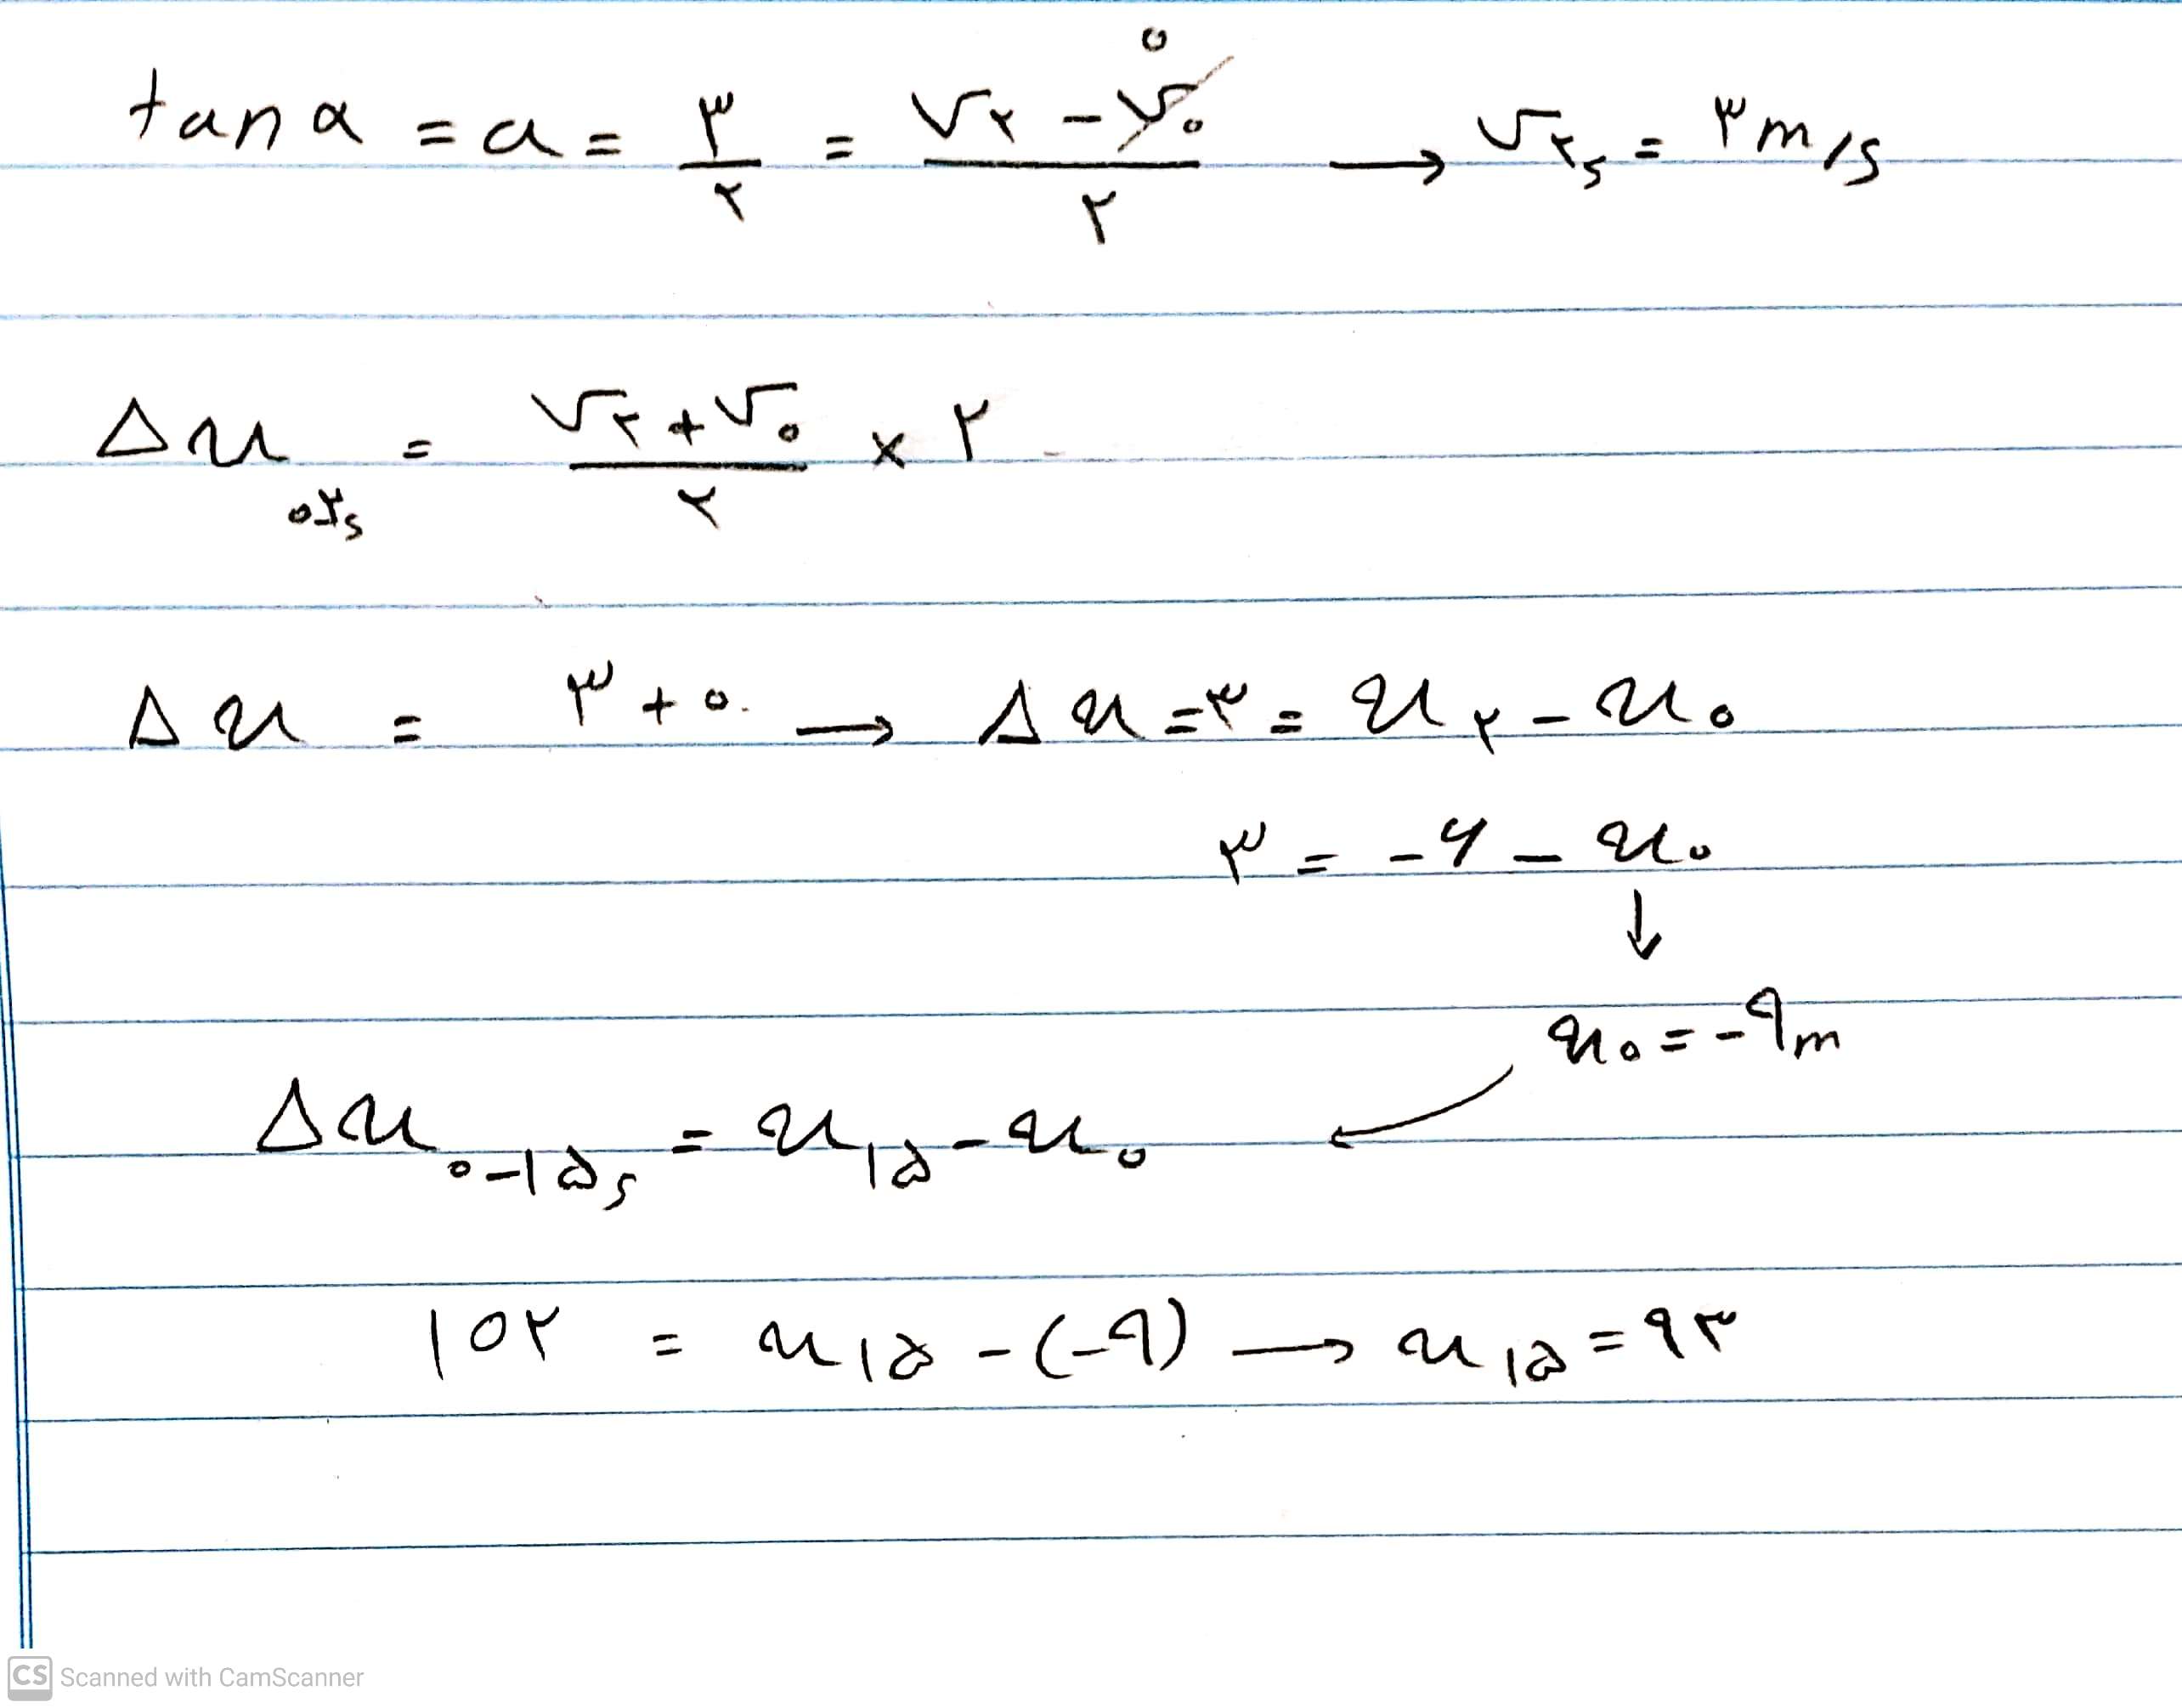 tanα = a = ۳/۲ = (v۲ - v۰)/۲ → v۲s = ۳m/s
۰
Δx ۰-۲s = (v۲ + v۰)/۲ × ۲
Δx = ۳ + ۰ → Δx = ۳ = x۲ - x۰
۳ = -۶ - x۰
↓
x۰ = -۹m
Δx ۰-۱۵s = x۱۵ - x۰ ←
۱۰۲ = x۱۵ - (-۹) → x۱۵ = ۹۳
CS Scanned with CamScanner